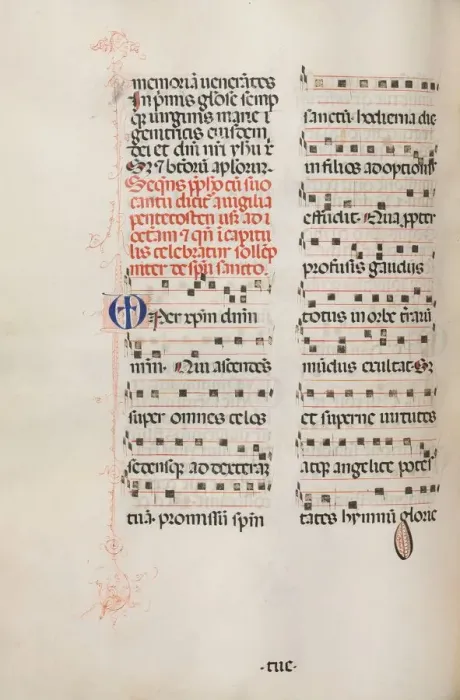 memoriā uenerātes
In pͥmis glõse semp
qȝ uirginis marie ⁊
genitricis eiusdem
dei et dñi nr̃i yħu x̄
Sȝ ⁊ bt̃orũ aplorur.
Seqͣns p̱phō cũ suo
cantu dicit᷑ a uigilia
pentecosten usqȝ ad i
octam ⁊ qñ ī capitu
lis celebratur sollēp
niter de spũ sancto.
Per xp̃m dñm
nr̃m. Qui ascendēs
super omnes celos
sedensqȝ ad dexterā
tuā. promissũ spm̄
sanctũ. hodierna die
in filios adoptiōis
effudit. Qua p̱pter
profusis gaudiis
totus in orbe tr̃arũ
mũdus exultat. Sȝ
et superne uirtutes
atqȝ angelice potes
tates hymnũ glorie
·tue·